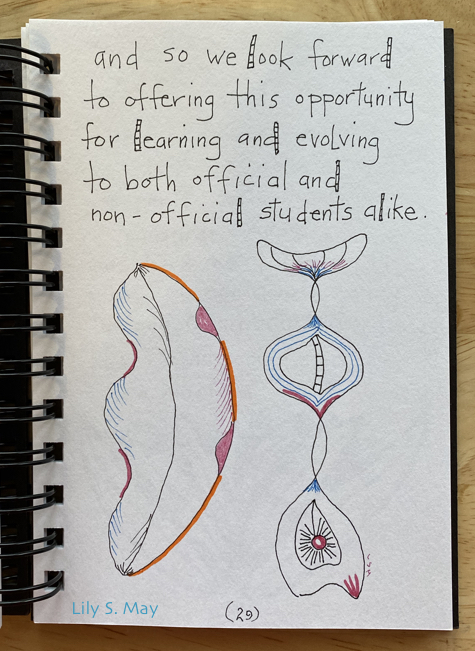 and so we look forward
to offering this opportunity
for learning and evolving
to both official and
non-official students alike.
Lily S. May
(29)